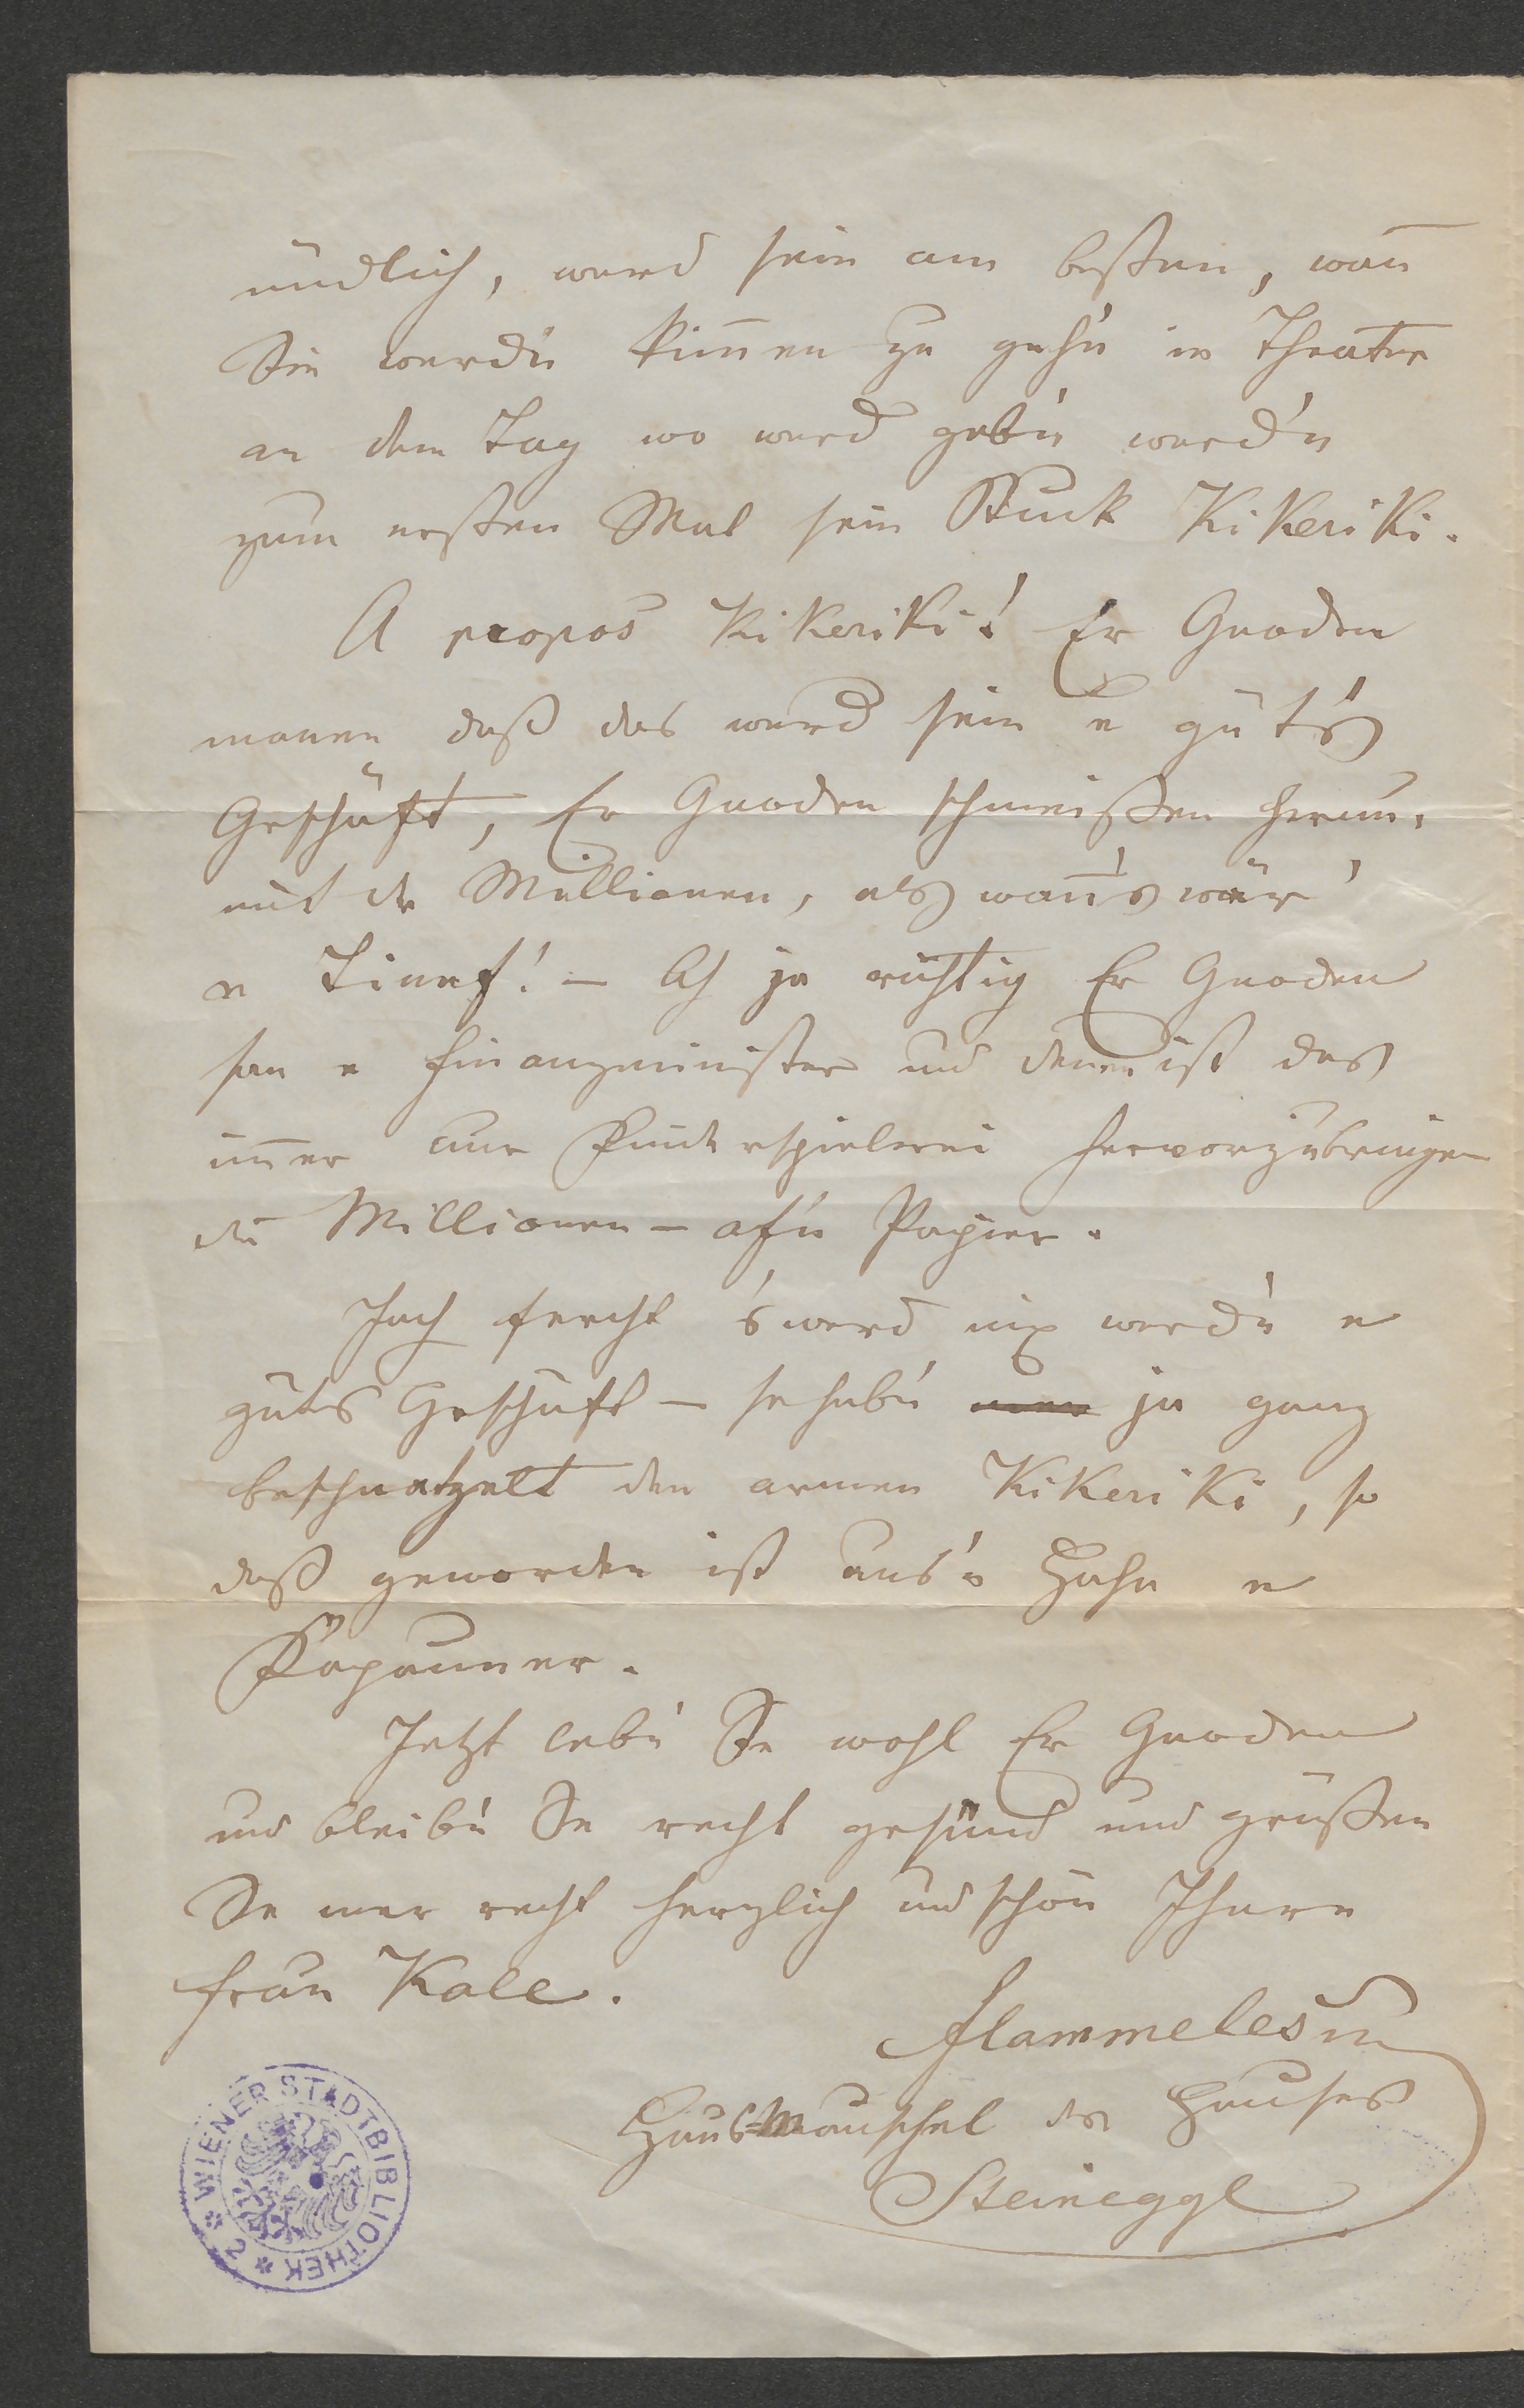 nüdlich, werd sein am besten, wan̅
Sie werd'n kim̅en zu geh'n in Theater
an dem Tag wo werd geb'n werd'n
zum ersten Mal sein Stuck Kikeriki.
A propos Kikeriki! Er Gnoden
manen daß das werd sein e gut's
Geschäft, Er Gnoden schmeißen herum.
mit de Millionen, als wan̅'s wär'
e Tinnef! – Ah ja richtig Er Gnoden
san e Finanzminister und denen ist das
im̅er nur Kinderspielerei hervorzubringen
die Millionen – af'n Papier.
Jach fercht 's werd nix werd'n e
guts Geschäft – se hab'n ja ganz
beschnatzelt den armen Kikeriki, so
daß geworden ist aus'n Hahn e
Kapauner.
Jetzt leb'n Se wohl Er Gnoden
und bleib'n Se recht gesund und grüßen
Se mer recht herzlich und schön Ihnere
Frau Kalle.
Flammeles m
Haus=Mauschel des Hauses
Steineggl
WIENER STADTBIBLIOTHEK
2